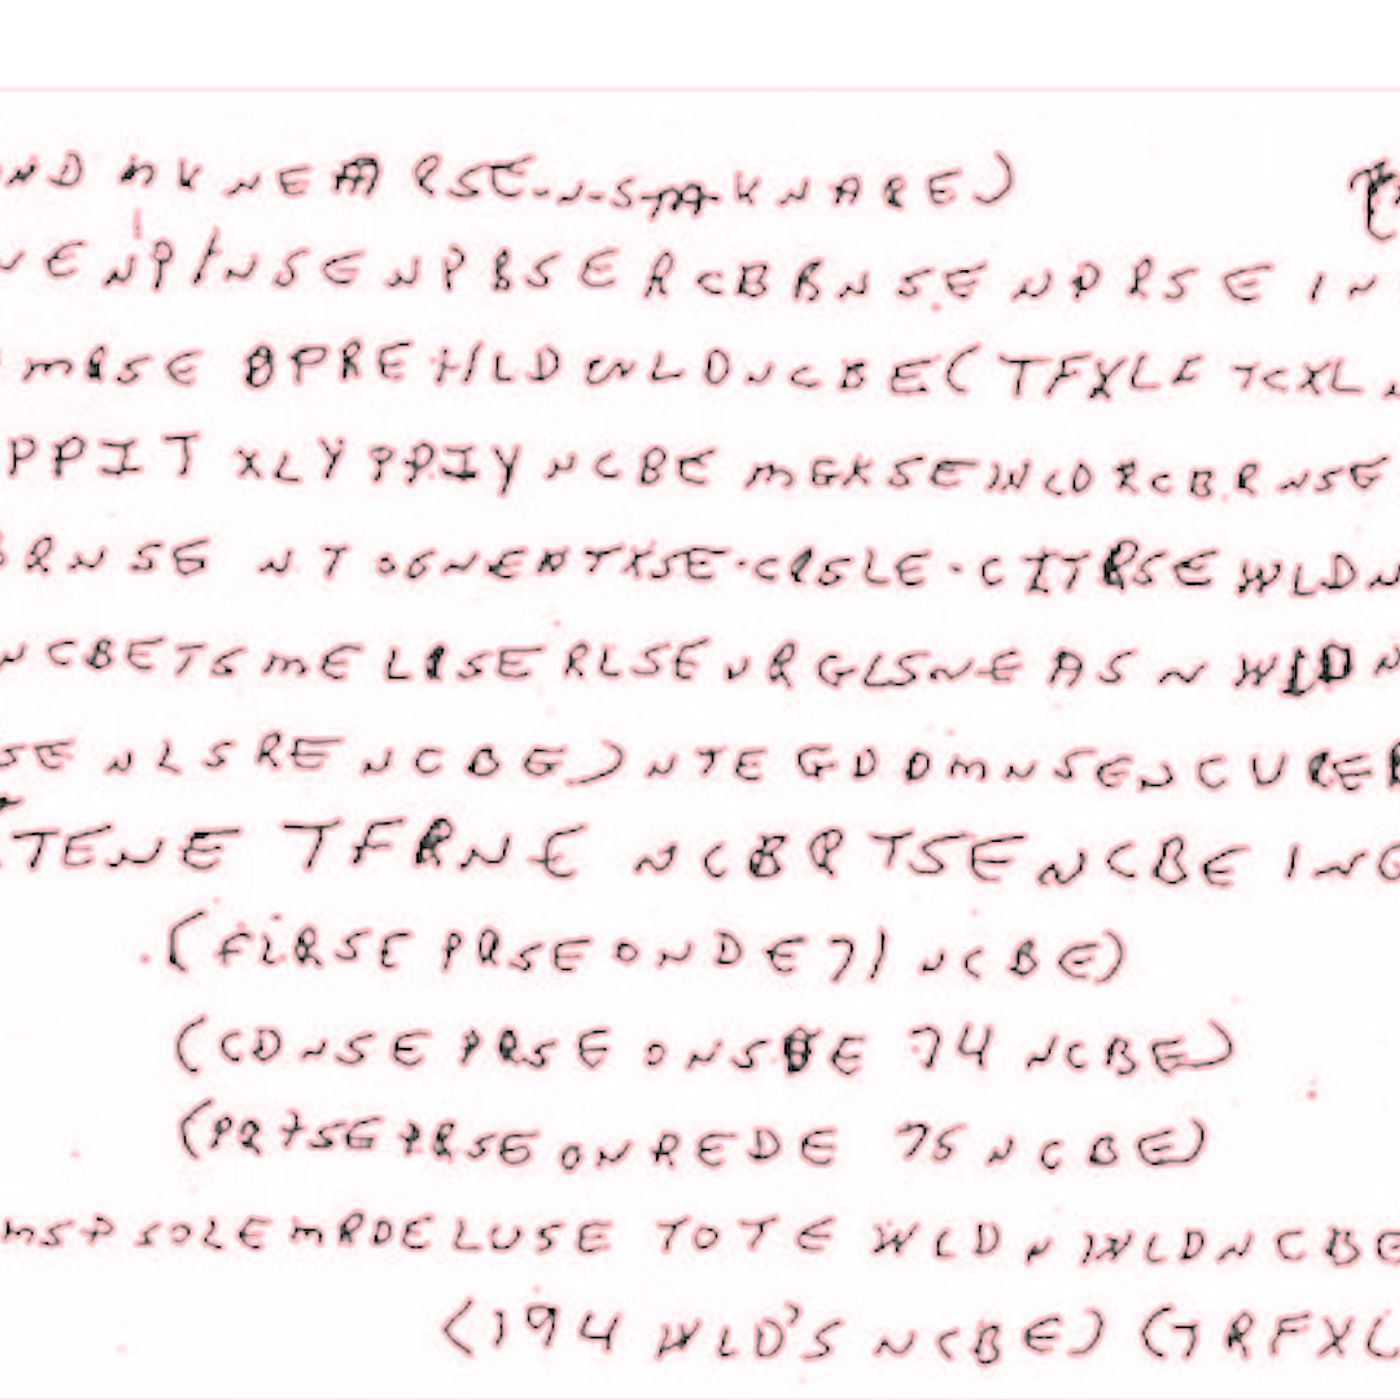 ND MKNEARSE-N-S-M-KNARE)
NE NPINSENPBSERCBBNSENPRSE IN
MRSE OPREHLD WLDNCBE(TFXLF TCXL
PPIT XLYPPIYNCBE MGKSEWLDRCBRNSE
RNSG NTOGNEATKSE-CRSLE-CITRSE WLDN
NCBETSMELRSERLSEURGLSNEAS N WLD N
SE NLSRENCBE)NTEGDDMNSENCUREB
TENE TFRNE NCBRTSENCBE ING
(FLRSE PRSEONDE71 NCBE)
(CDNSE PRSE ONSDE 74 NCBE)
(PRTSE PRSE ONREDE 75 NCBE)
MSP SOLE MRDELUSE TOTE WLD N WLDNCBE
(194 WLD'S NCBE)(TRFXL